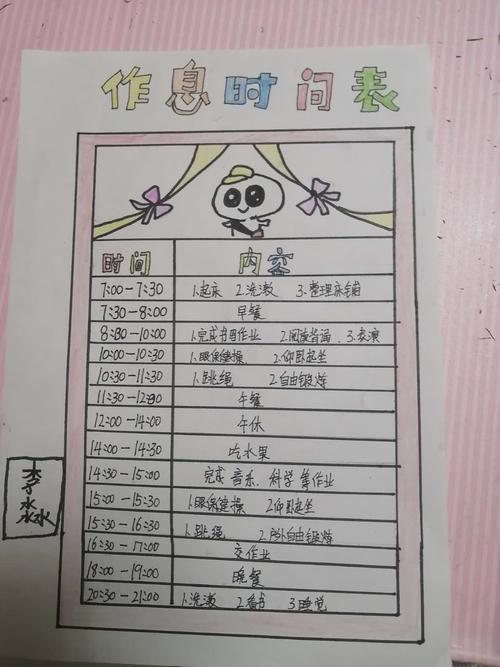 作息时间表
时间 内容
7:00-7:30 1.起床 2.洗漱 3.整理床铺
7:30-8:00 早餐
8:30-10:00 1.完成书面作业 2.阅读背诵 3.表演
10:00-10:30 1.眼保健操 2.仰卧起坐
10:30-11:30 1.跳绳 2.自由锻炼
11:30-12:00 午餐
12:00-14:00 午休
14:00-14:30 吃水果
14:30-15:00 完成音乐、科学等作业
15:00-15:30 1.眼保健操 2.仰卧起坐
15:30-16:30 1.跳绳 2.户外自由锻炼
16:30-17:00 交作业
18:00-19:00 晚餐
20:30-21:00 1.洗漱 2.看书 3.睡觉
李淼淼